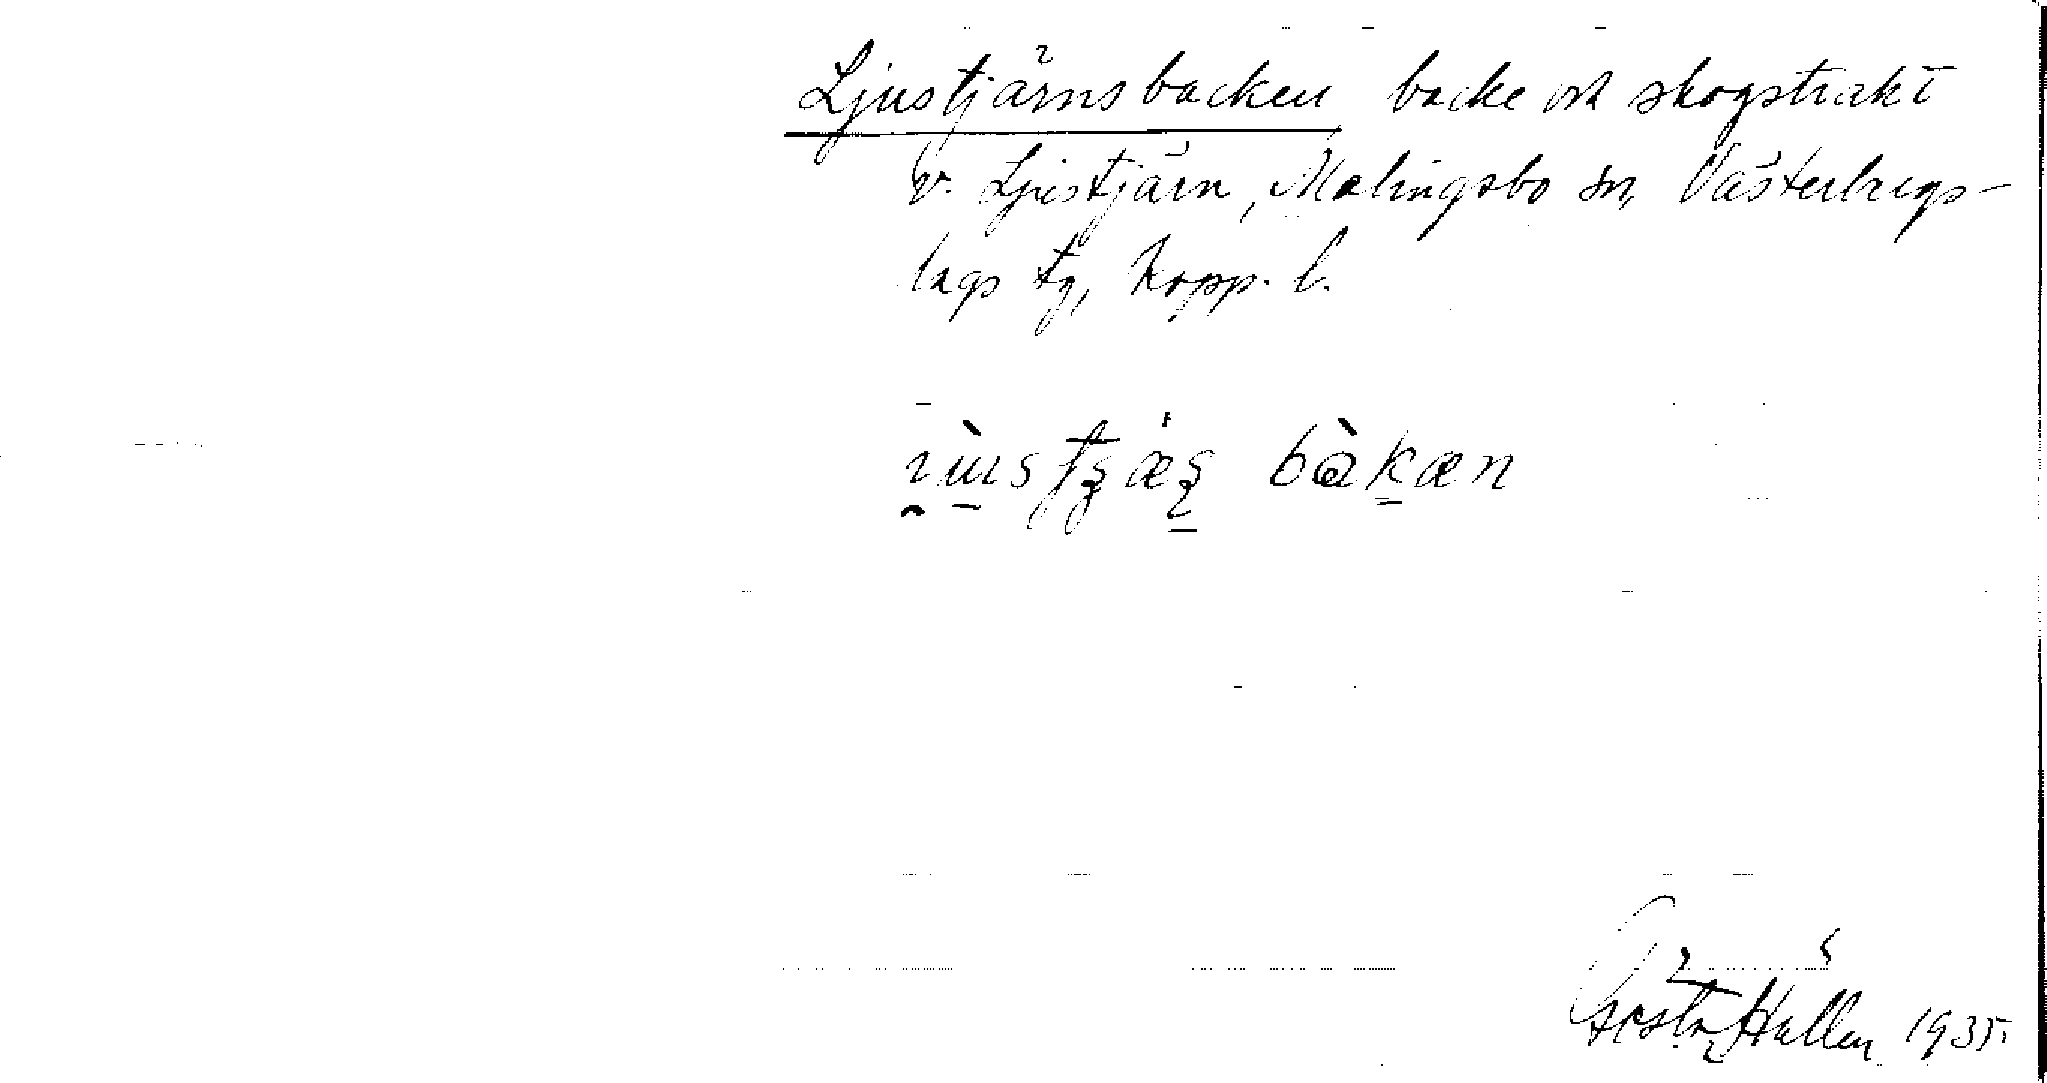 Ljustjärnsbacken backe och skogstrakt
v. Ljustjärn, Malingsbo sn, Västerbergs-
lags tg, Kopp. l.
bàkæn
Gösta Hallén 1935